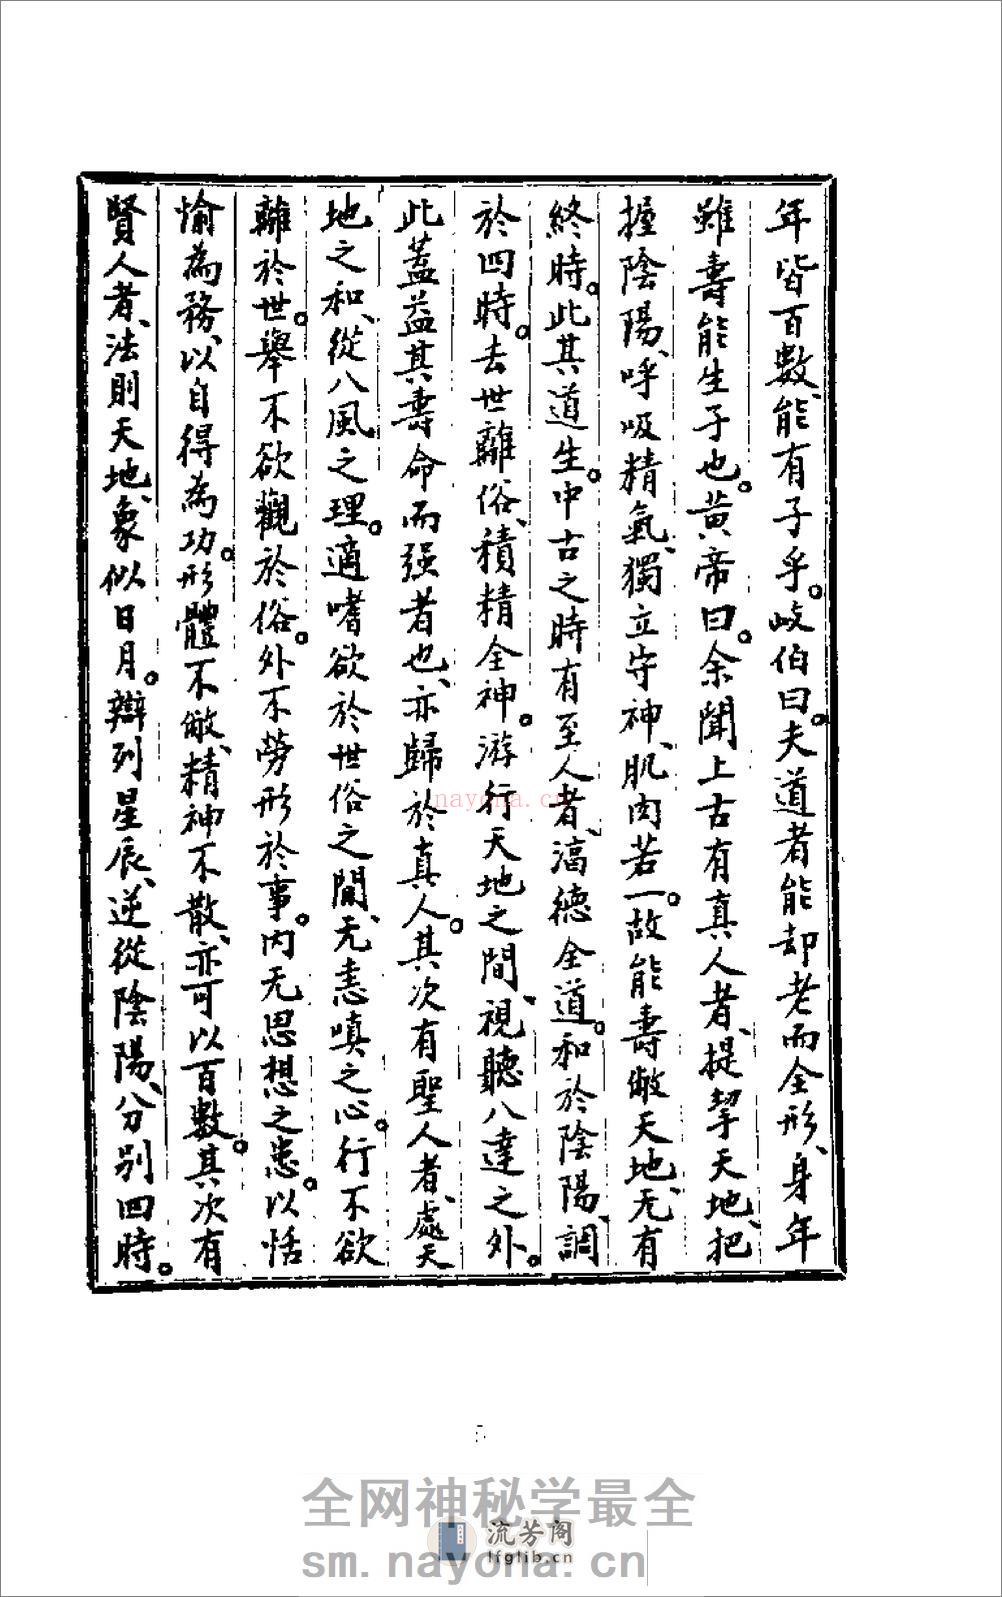 年皆百數、能有子乎。岐伯曰。夫道者能却老而全形、身年
雖壽能生子也。黃帝曰。余聞上古有真人者、提挈天地、把
握陰陽、呼吸精氣、獨立守神、肌肉若一。故能壽敝天地、无有
終時。此其道生。中古之時有至人者、淳德全道。和於陰陽、調
於四時。去世離俗、積精全神。游行天地之間、視聽八達之外。
此蓋益其壽命而强者也、亦歸於真人。其次有聖人者、處天
地之和、從八風之理。適嗜欲於世俗之間、无恚嗔之心。行不欲
離於世。舉不欲觀於俗。外不勞形於事。内无思想之患。以恬
愉為務、以自得為功。形體不敝、精神不散、亦可以百數。其次有
賢人者、法則天地、象似日月。辯列星辰、逆從陰陽、分别四時。
nayona.cn
全网神秘学最全
流芳阁
lfglib.cn
sm.nayona.cn